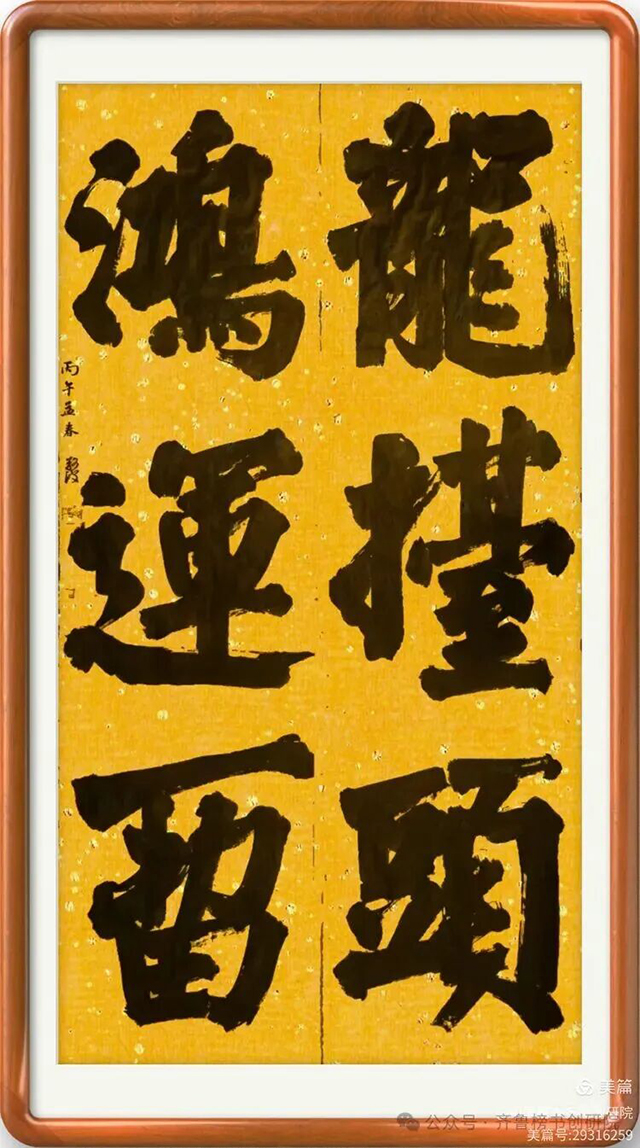 龍擡頭
鴻運畱
丙午孟春
美篇
公众号 · 齐鲁榜书创研院
美篇号:29316259